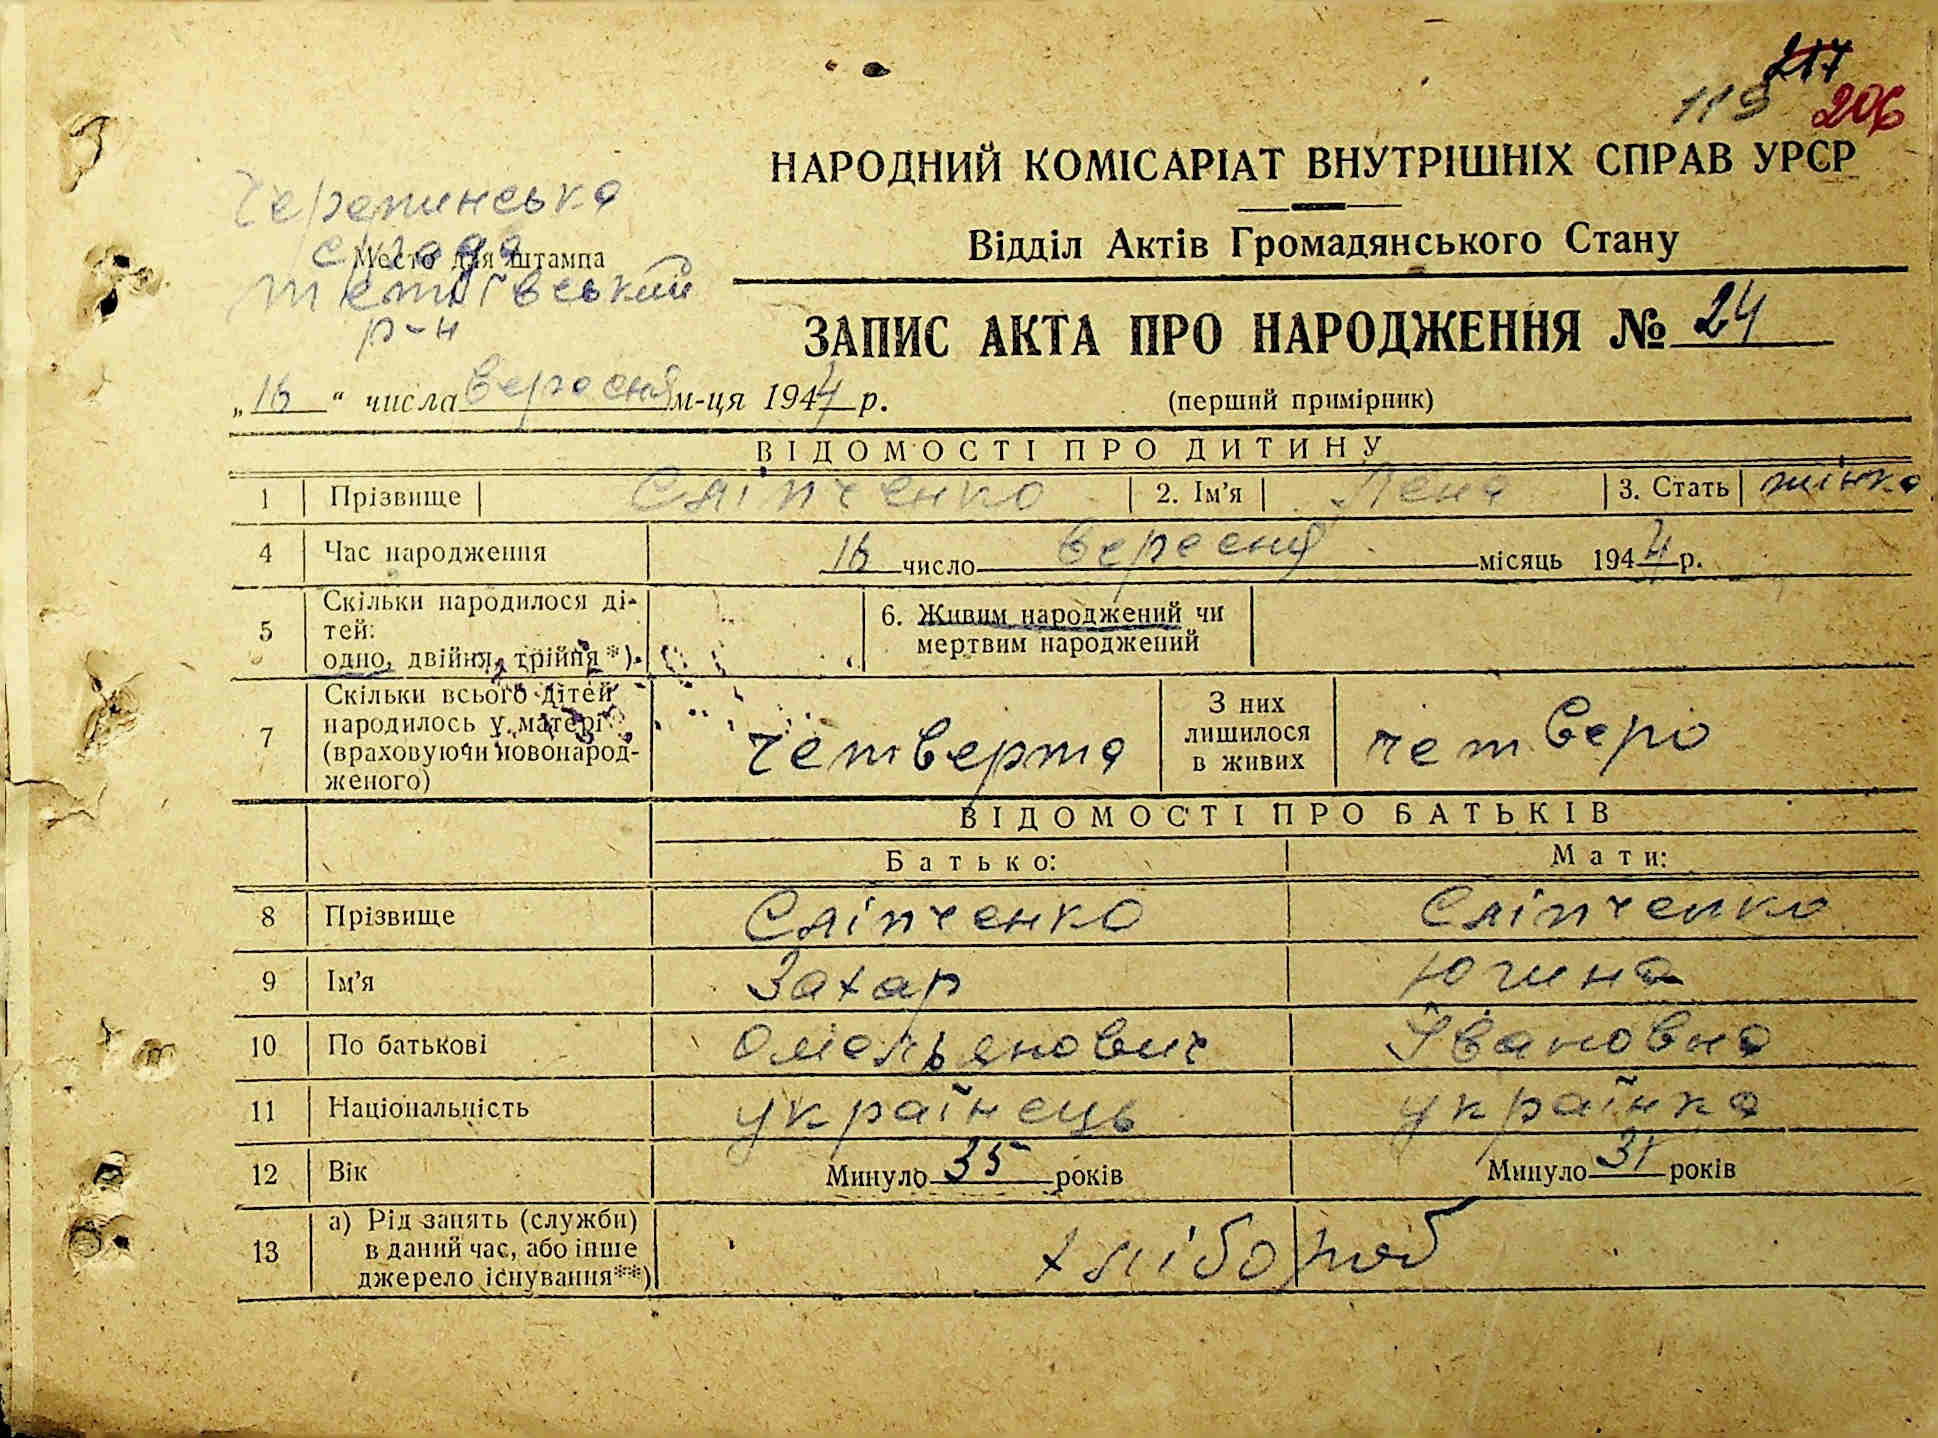 217
119 206
НАРОДНИЙ КОМІСАРІАТ ВНУТРІШНІХ СПРАВ УРСР
Відділ Актів Громадянського Стану
Черепинська
с/рада
Место для штампа
Тетіївський
р-н
ЗАПИС АКТА ПРО НАРОДЖЕННЯ № 24
„16“ числа вересня м-ця 1944 р.
(перший примірник)
ВІДОМОСТІ ПРО ДИТИНУ
1 Прізвище Сліпченко 2. Ім'я Лена 3. Стать жінка
4 Час народження 16 число вересня місяць 1944 р.
5 Скільки народилося ді-
тей:
одно, двійня, трійня*)
6. Живим народжений чи
мертвим народжений
7 Скільки всього дітей
народилось у матері
(враховуючи новонарод-
женого)
четверта
З них
лишилося
в живих
четверо
ВІДОМОСТІ ПРО БАТЬКІВ
Батько: Мати:
8 Прізвище Сліпченко Сліпченко
9 Ім'я Захар Югина
10 По батькові Омельянович Івановна
11 Національність українець українка
12 Вік Минуло 35 років Минуло 31 років
13 а) Рід занять (служби)
в даний час, або інше
джерело існування**)
хлібороб